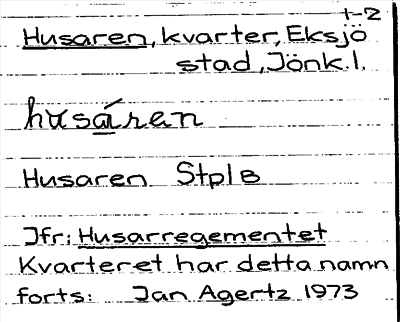 1-2
Husaren, kvarter, Eksjö
stad, Jönk.l.
husáren
Husaren StplB
Jfr: Husarregementet
Kvarteret har detta namn
forts: Jan Agertz 1973